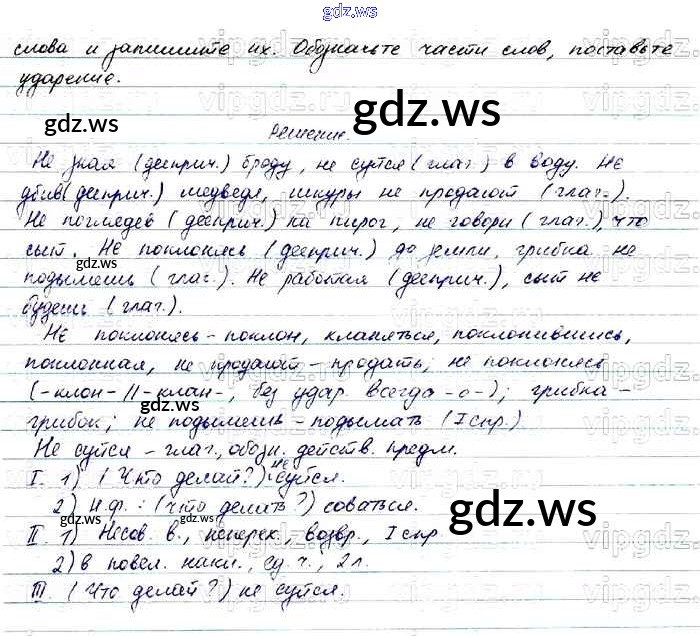 gdz.ws
слова и запишите их. Обозначьте части слов, поставьте
ударение.
gdz.ws
gdz.ws
Решение.
Не зная (дееприч.) броду, не суйся (глаг.) в воду. Не
убив (дееприч.) медведя, шкуры не продают (глаг.).
Не поглядев (дееприч.) на пирог, не говори (глаг.), что
сыт. Не поклонясь (дееприч.) до земли, грибка не
подымешь (глаг.). Не работая (дееприч.), сыт не
gdz.ws
будешь (глаг.).
Не поклонясь - поклон, кланяться, поклонившись,
поклонная, не продают - продать; не поклонясь
(-клон-//-клан-, без удар. всегда -о-); грибка -
gdz.ws
грибок; не подымешь - подымать (I спр.)
Не суйся - глаг., обозн. действ. предм.
I. 1) (Что делай?) не суйся.
2) Н.ф.: (что делать?) соваться.
gdz.ws
II. 1) Несов. в., неперех., возвр., I спр
2) в повел. накл., ед. ч., 2 л.
III. (Что делай?) не суйся.
gdz.ws